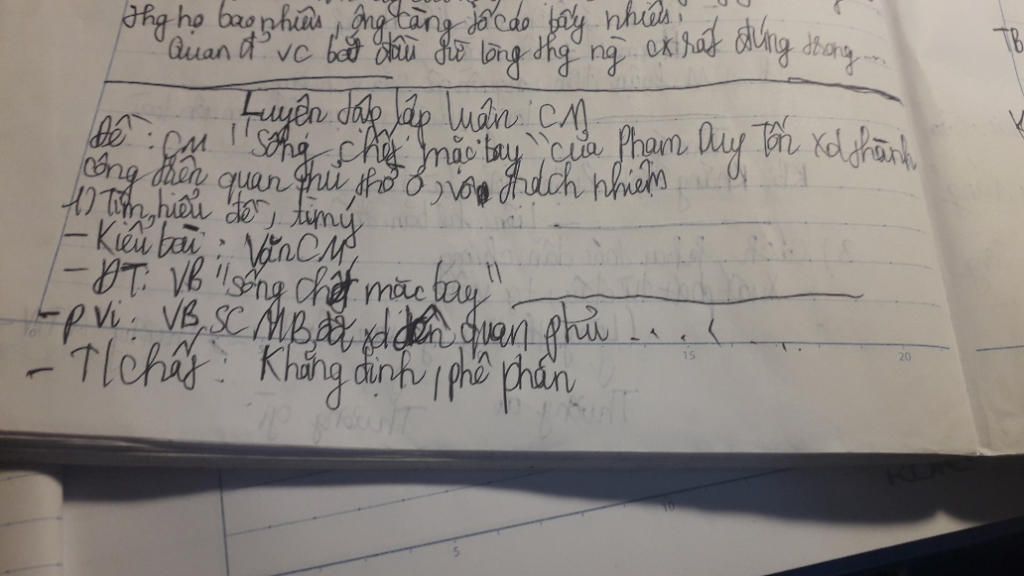 thg họ bao nhiêu, ông càng tố cáo bấy nhiêu.
Quan đ' vc bắt đầu từ lòng thg ng cx rất đúng trong...
Luyện tập lập luận CM
Đề: CM "Sống chết mặc bay" của Phạm Duy Tốn xd thành
công tên quan phủ thờ ơ, vô trách nhiệm
1) Tìm hiểu đề, tìm ý
- Kiểu bài: Văn CM
- ĐT: VB "Sống chết mặc bay"
- p vi: VB SCMB đã xd tên quan phủ ...
- T/chất: Khẳng định, phê phán
TB
15
20
5
10